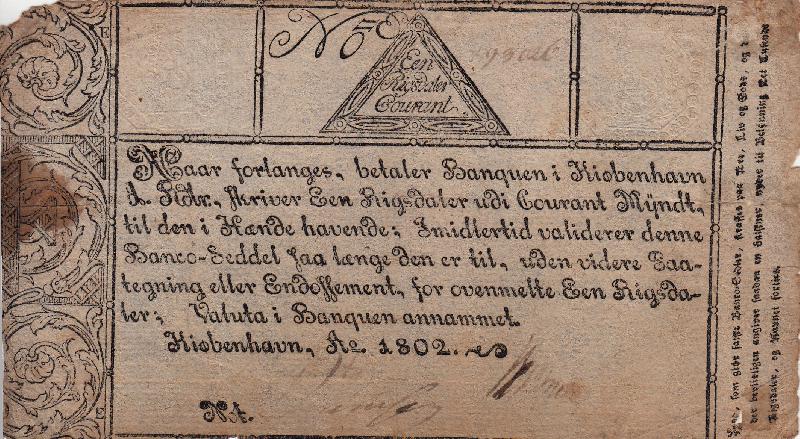 No
Een
Rigsdaler
Courant.
Naar forlanges, betaler Banquen i Kiøbenhavn
1. Rdlr., skriver Een Rigsdaler udi Courant Mÿndt,
til den i Hænde havende; Imidlertid validerer denne
Banco-Seddel saa længe den er til, uden videre Paa-
tegning eller Endossement, for ovenmelte Een Rigsda-
ler; Valuta i Banquen annammet.
Kiøbenhavn, Ao. 1802.
Nt.
som giør falske Banco-Sedler, straffes paa Ære, Liv og Gods, og
der beviisligen angiver saadan en Falskner, nyder til Belønning
Rigsdaler, og Navnet forties.